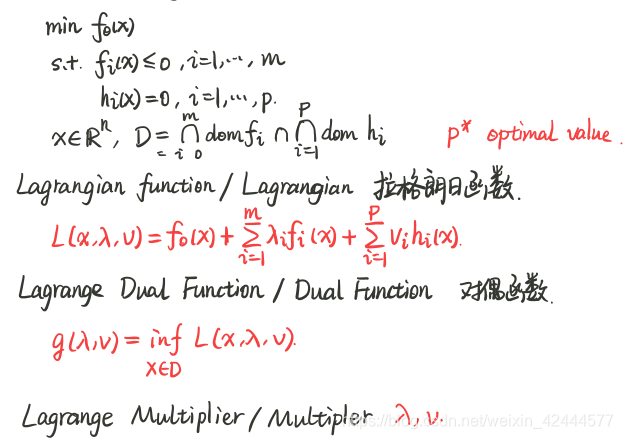 min f₀(x)
s.t. fᵢ(x) ≤ 0, i=1,…, m
hᵢ(x)=0, i=1,…, p.
x∈ℝⁿ, D = ⋂ᵢ₌₀ᵐ dom fᵢ ∩ ⋂ᵢ₌₁ᵖ dom hᵢ p* optimal value.
Lagrangian function / Lagrangian 拉格朗日函数.
L(x,λ,ν) = f₀(x) + ∑ᵢ₌₁ᵐ λᵢfᵢ(x) + ∑ᵢ₌₁ᵖ νᵢhᵢ(x).
Lagrange Dual Function / Dual Function 对偶函数.
g(λ,ν) = inf_{x∈D} L(x,λ,ν).
Lagrange Multiplier / Multipler λ, ν.
https://blog.csdn.net/weixin_42444577